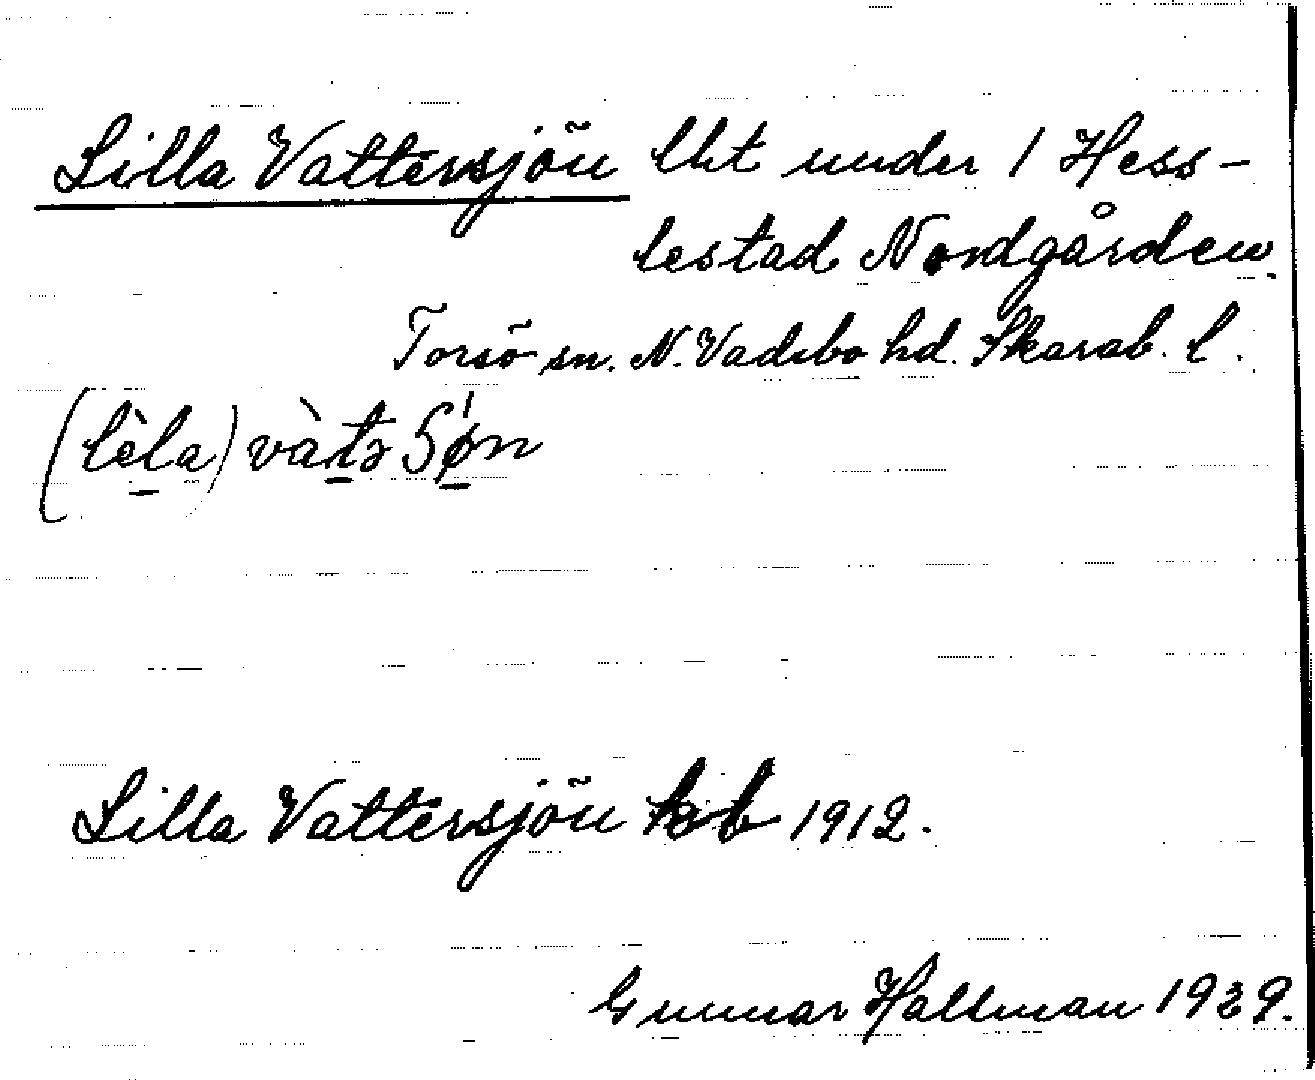 Lilla Vattersjön lht under 1 Hess-
lestad Nordgården
Torsö sn. N. Vadsbo hd. Skarab. l.
(lèla) vàtə ʃø̍n
Lilla Vattersjön hb 1912.
Gunnar Hallman 1939.